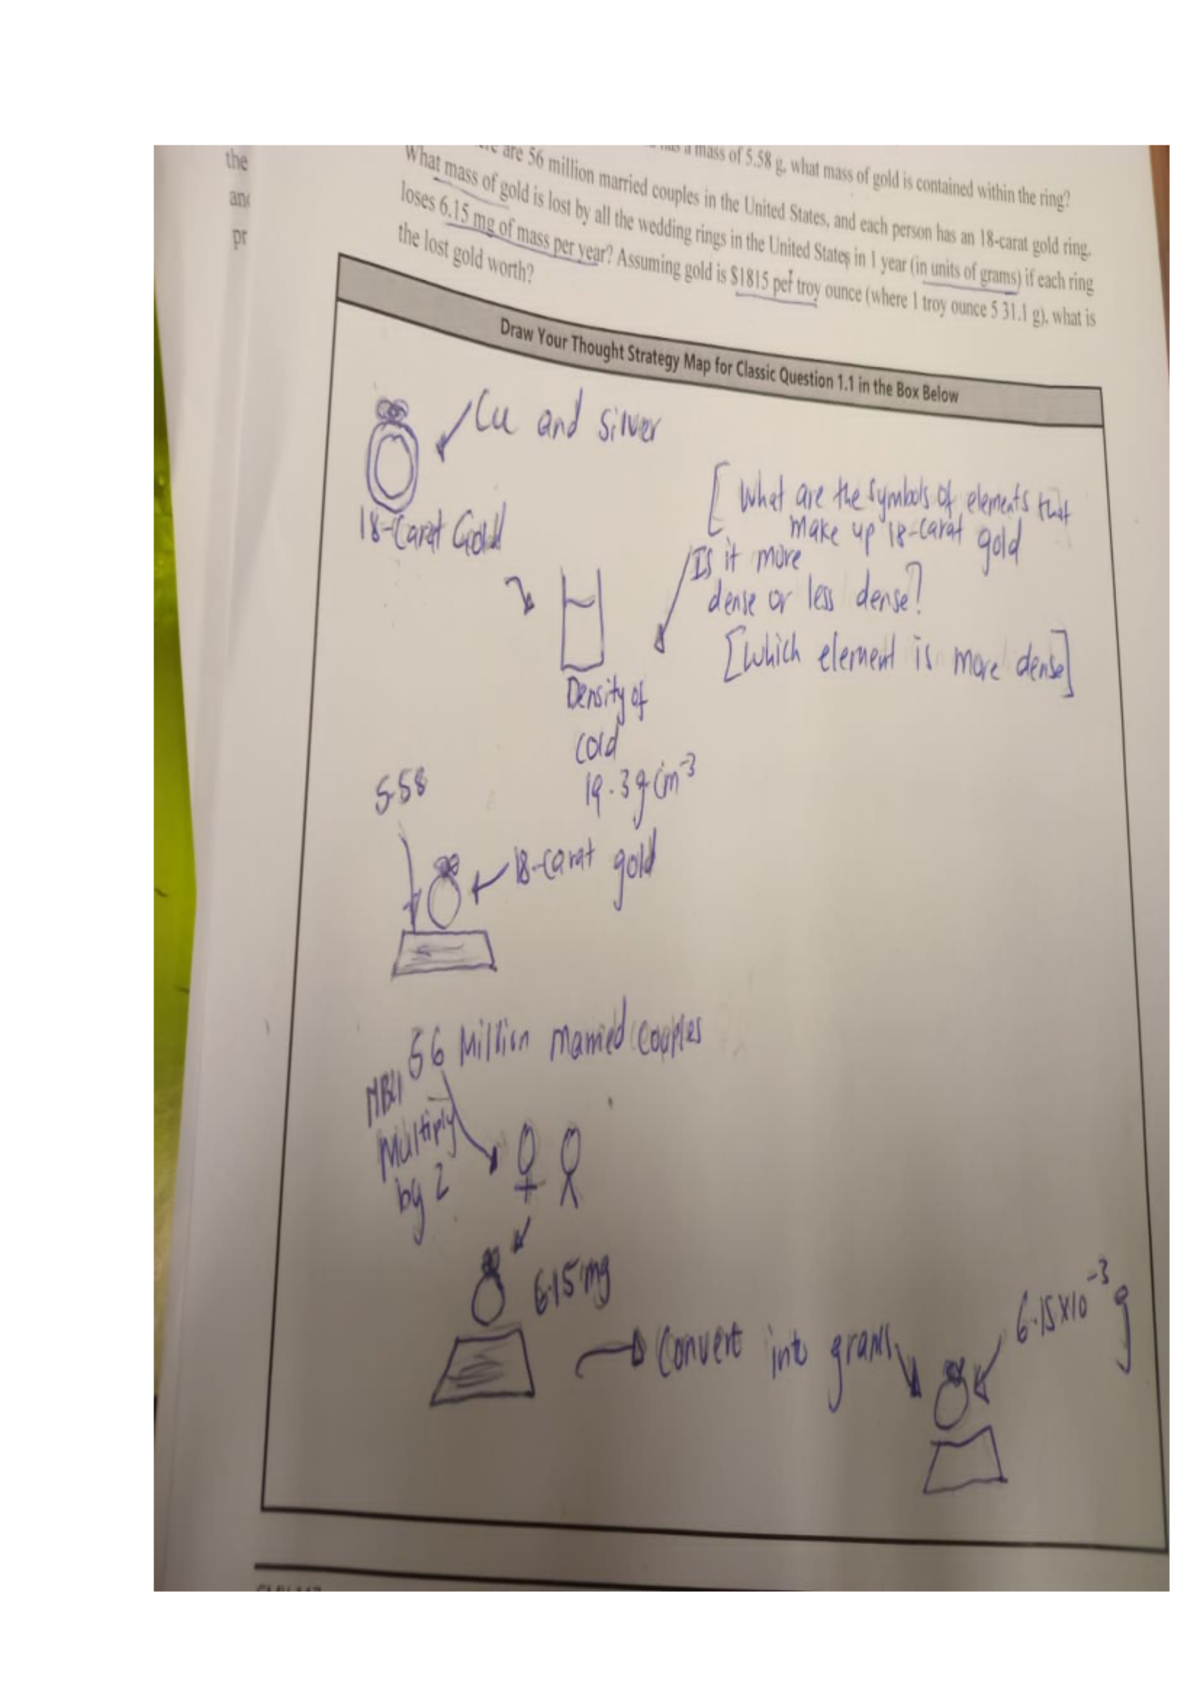 the
and
pr
a mass of 5.58 g, what mass of gold is contained within the ring?
are 56 million married couples in the United States, and each person has an 18-carat gold ring.
What mass of gold is lost by all the wedding rings in the United States in 1 year (in units of grams) if each ring
loses 6.15 mg of mass per year? Assuming gold is $1815 per troy ounce (where 1 troy ounce 5 31.1 g), what is
the lost gold worth?
Draw Your Thought Strategy Map for Classic Question 1.1 in the Box Below
Cu and silver
18-Carat Gold
[ What are the symbols of elements that
make up 18-carat gold
Is it more
dense or less dense?
[Which element is more dense]
Density of
Gold
19.3 g cm-3
5.58
18-carat gold
56 Million married couples
Multiply
by 2
6.15 mg
Convert into grams
6.15x10-3 g